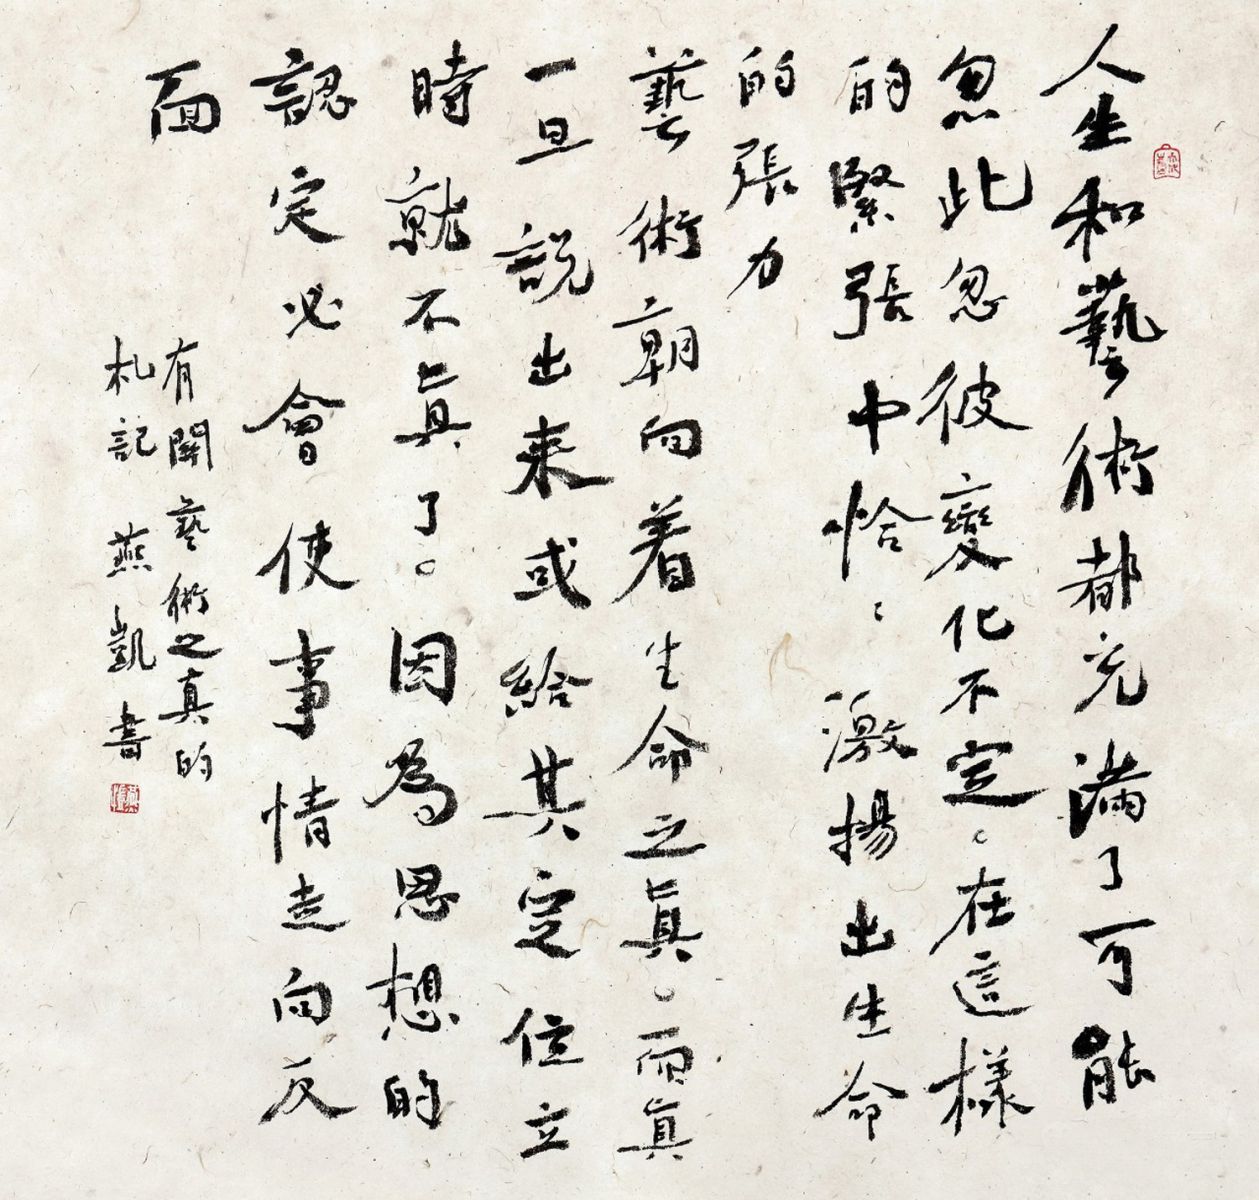 人生和藝術都充滿了可能
忽此忽彼變化不定。在這樣
的緊張中恰恰激揚出生命
的張力
藝術朝向着生命之眞。而眞
一旦説出来或給其定位立
時就不眞了。因為思想的
認定必會使事情走向反
面
有關藝術之真的
札記 燕凱書